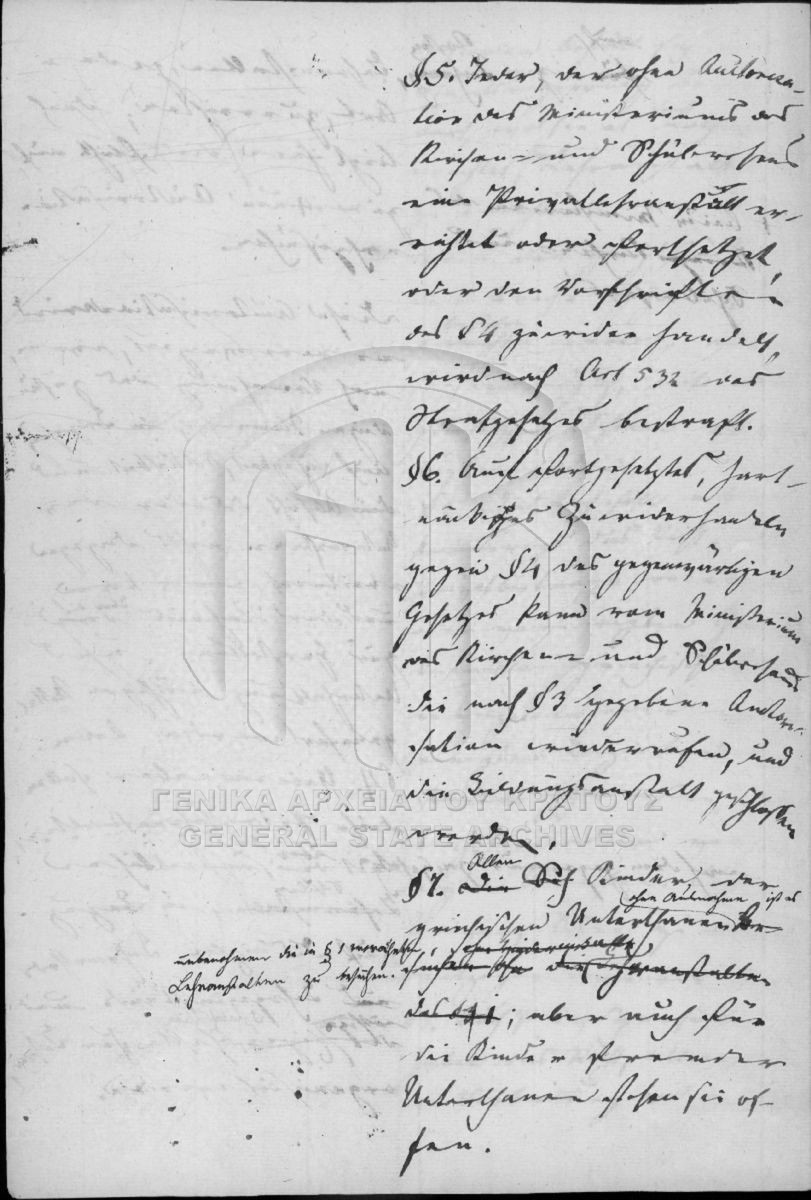 §5. Jeder, der ohne Autorisa-
tion des Ministeriums des
Kirchen- und Schulwesens
eine Privatlehranstalt er-
richtet oder fortsetzet,
oder den Vorschriften
des §4 zuwider handelt,
wird nach Art 532 des
Strafgesetzes bestraft.
§6. Auch fortgesetztes, hart-
näckiges Zuwiderhandeln
gegen §4 des gegenwärtigen
Gesetzes kann vom Ministerium
des Kirchen- und Schulwesens
die nach §3 gegebene Autori-
sation wiederrufen, und
die Bildungsanstalt geschlossen
werden.
ΓΕΝΙΚΑ ΑΡΧΕΙΑ ΤΟΥ ΚΡΑΤΟΥΣ
GENERAL STATE ARCHIVES
Allen
§7. Die Kinder der
ohne Ausnahme ist es
griechischen Unterthanen
unbenommen die in §1
Lehranstalten zu besuchen.
die Lehranstalten
des §1; aber auch für
die Kinder fremder
Unterthanen stehen sie of-
fen.